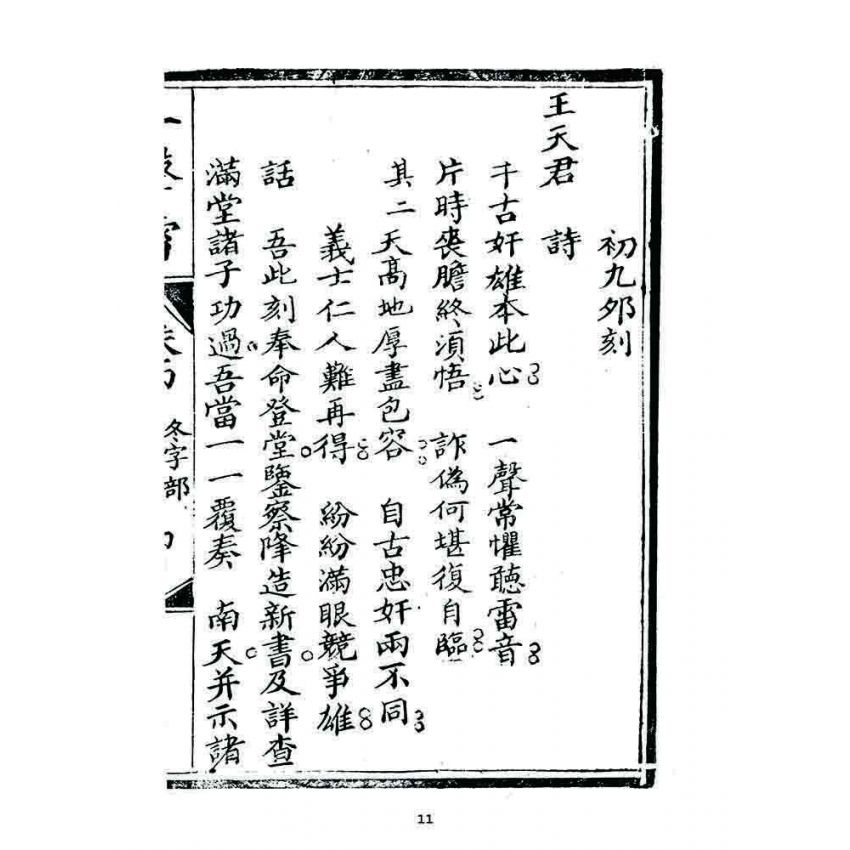 初九夘刻
王天君　詩
千古奸雄本此心　一聲常懼聽雷音
片時喪膽終須悟　詐偽何堪復自臨
其二天高地厚盡包容　自古忠奸兩不同
義士仁人難再得　紛紛滿眼競爭雄
話　吾此刻奉命登堂鑒察降造新書及詳查
滿堂諸子功過吾當一一覆奏　南天并示諸
冬字部
11